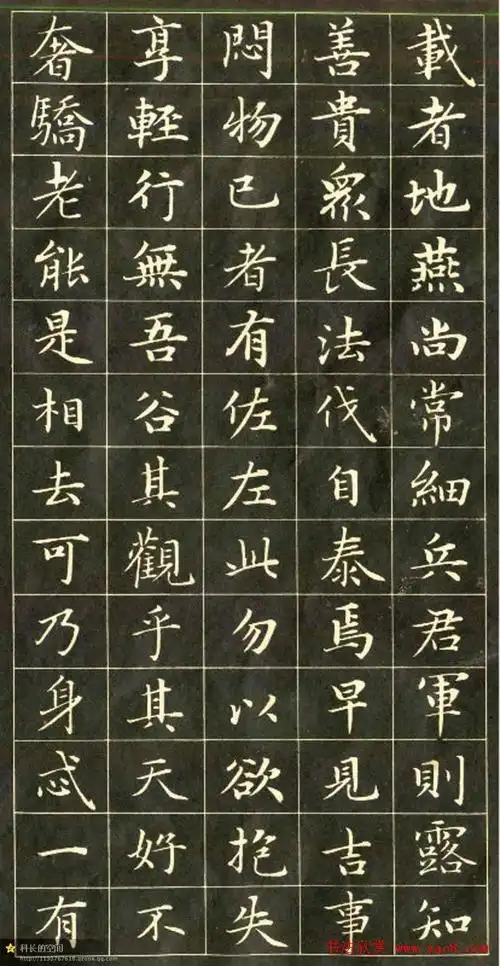 載者地燕尚常細兵君軍則露知
善貴眾長法伐自泰焉早見吉事
悶物已者有佐左此勿以欲抱失
享輕行無吾谷其觀乎其天好不
奢驕老能是相去可乃身忒一有
科长的空间
书法欣赏 www.yac8.com